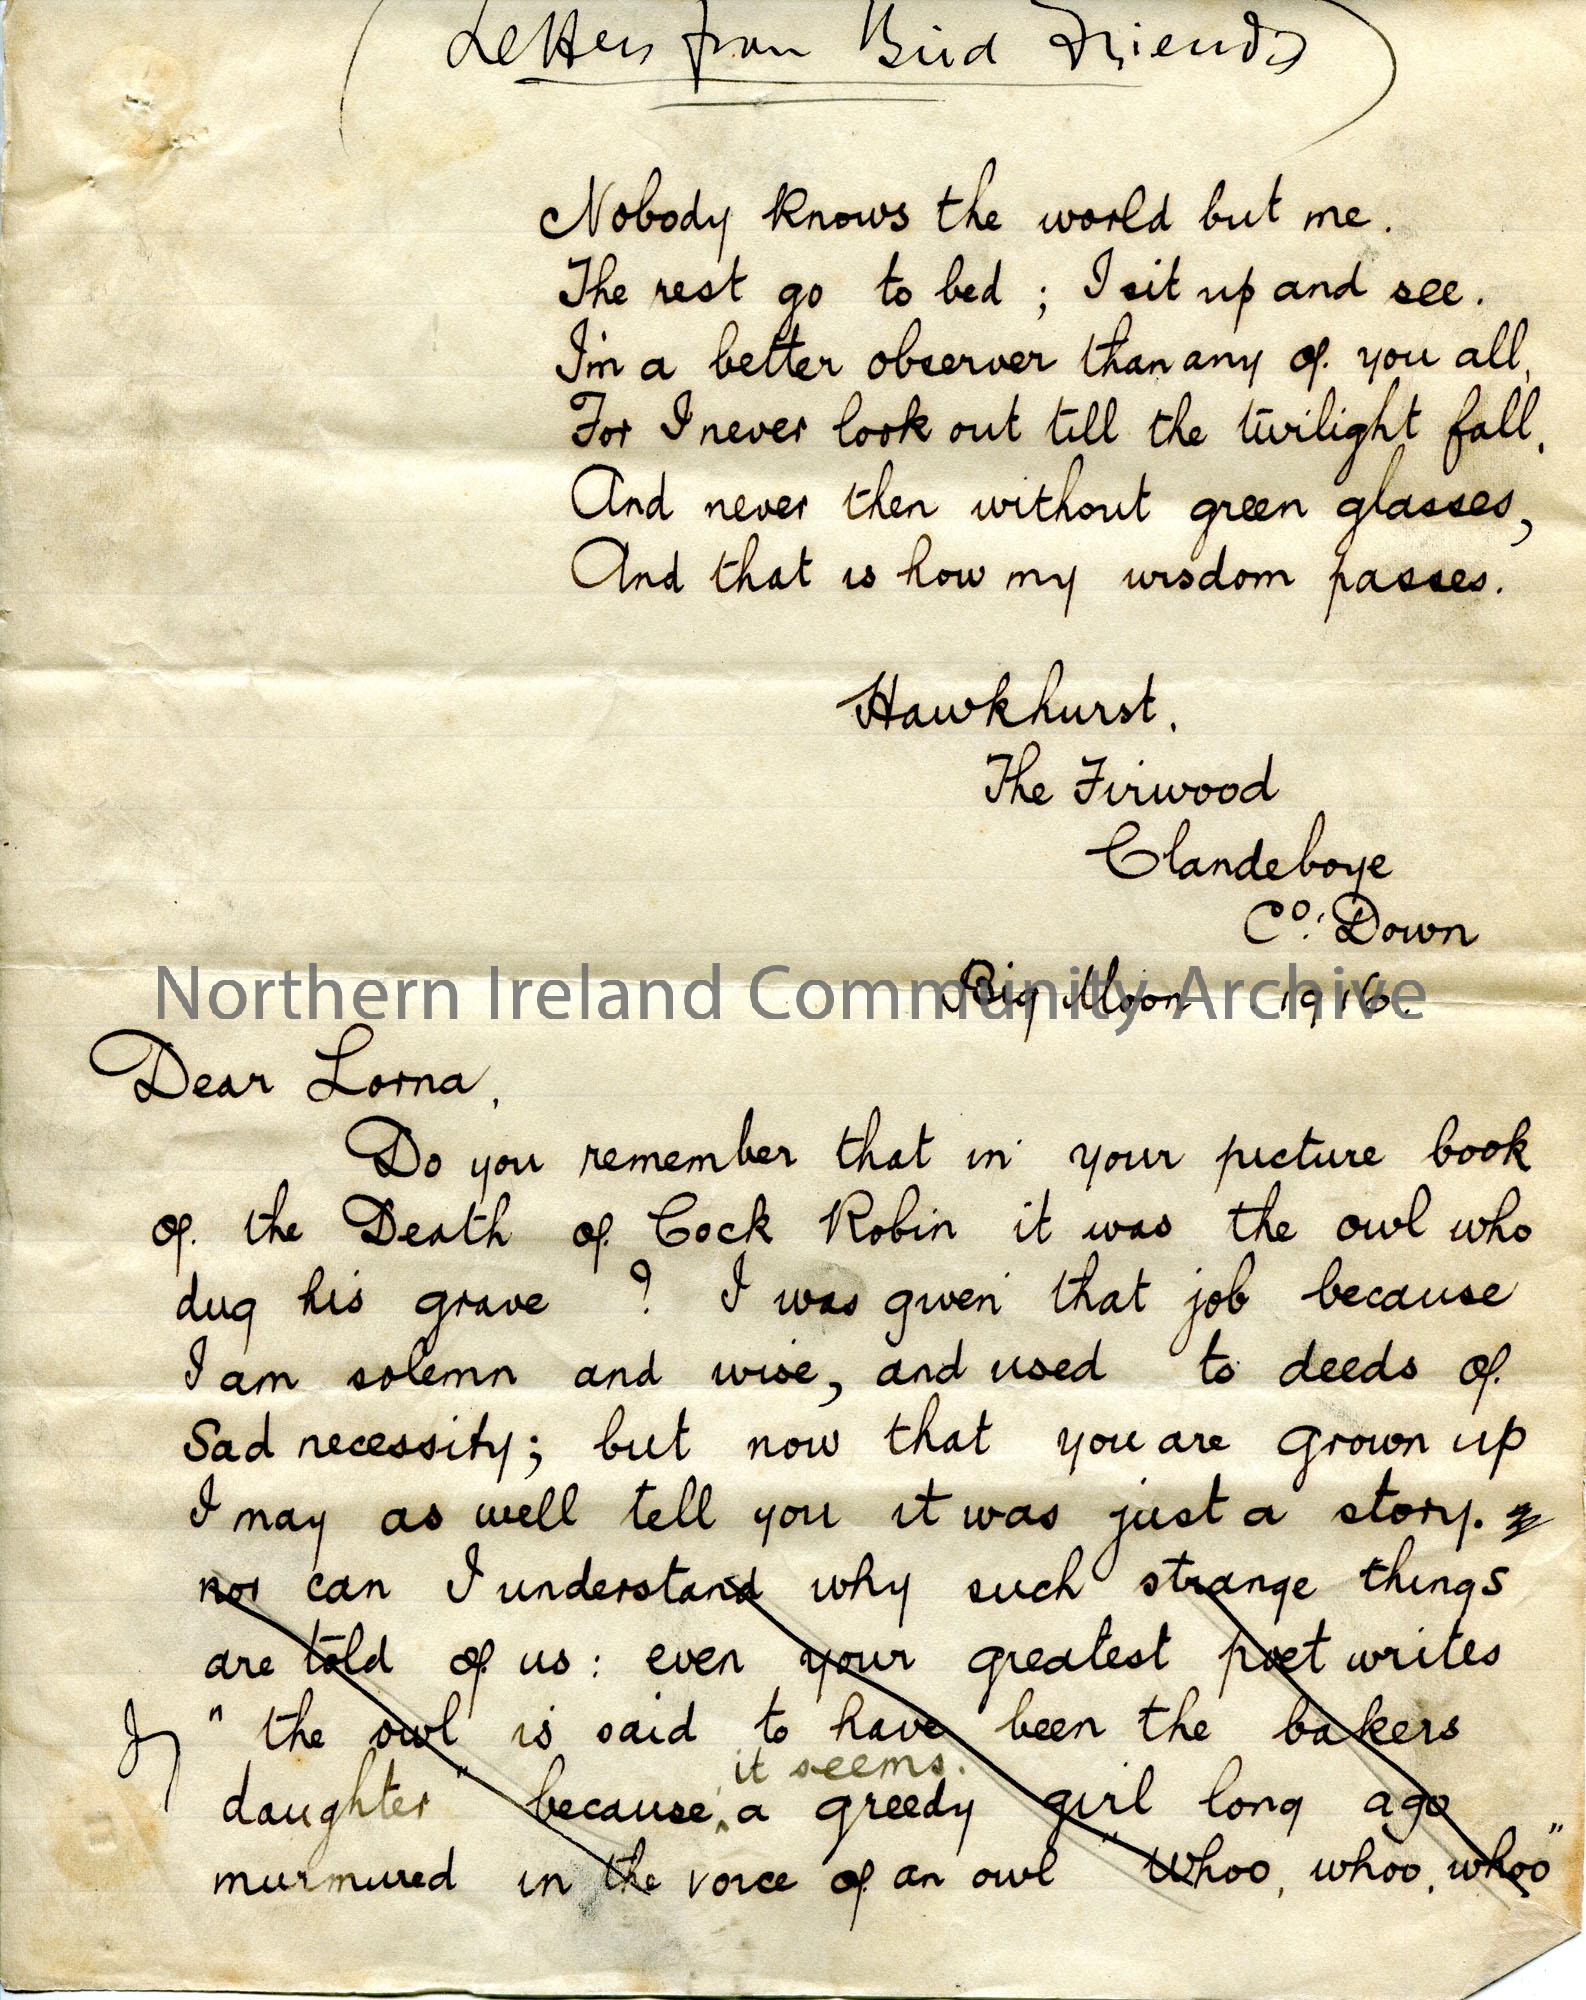 (Letters from Bird Friends)
Nobody knows the world but me.
The rest go to bed; I sit up and see.
I'm a better observer than any of you all,
For I never look out till the twilight fall,
And never then without green glasses,
And that is how my wisdom passes.
Hawkhurst.
The Firwood
Clandeboye
Co. Down
Big Moon 1916.
Northern Ireland Community Archive
Dear Lorna,
Do you remember that in your picture book
of the Death of Cock Robin it was the owl who
dug his grave? I was given that job because
I am solemn and wise, and used to deeds of
Sad necessity; but now that you are grown up
I may as well tell you it was just a story.
nor can I understand why such strange things
are told of us: even your greatest poet writes
"the owl is said to have been the bakers
it seems.
daughter" because, a greedy girl long ago
murmured in the voice of an owl "Whoo, whoo, whoo"